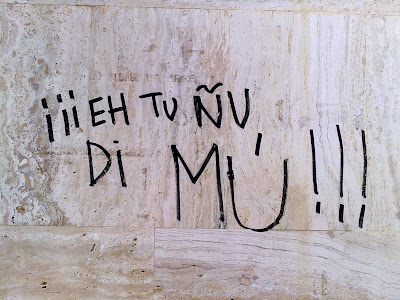 ¡¡¡EH TU ÑU
Di MÚ!!!